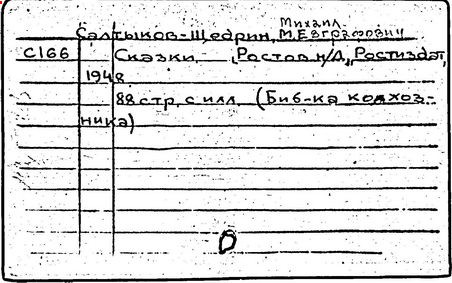 Михаил
Салтыков-Щедрин, М.Евграфович
С166 Сказки. Ростов н/Д, Ростиздат,
1948.
88 стр. с илл. (Биб-ка колхоз-
ника)